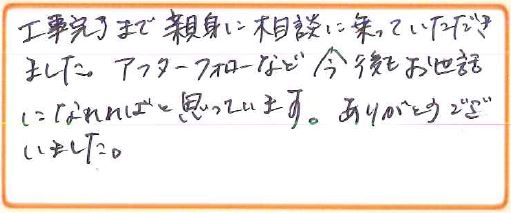 工事完了まで親身に相談に乗っていただき
ました。アフターフォローなど今後もお世話
になれればと思っています。ありがとうござ
いました。